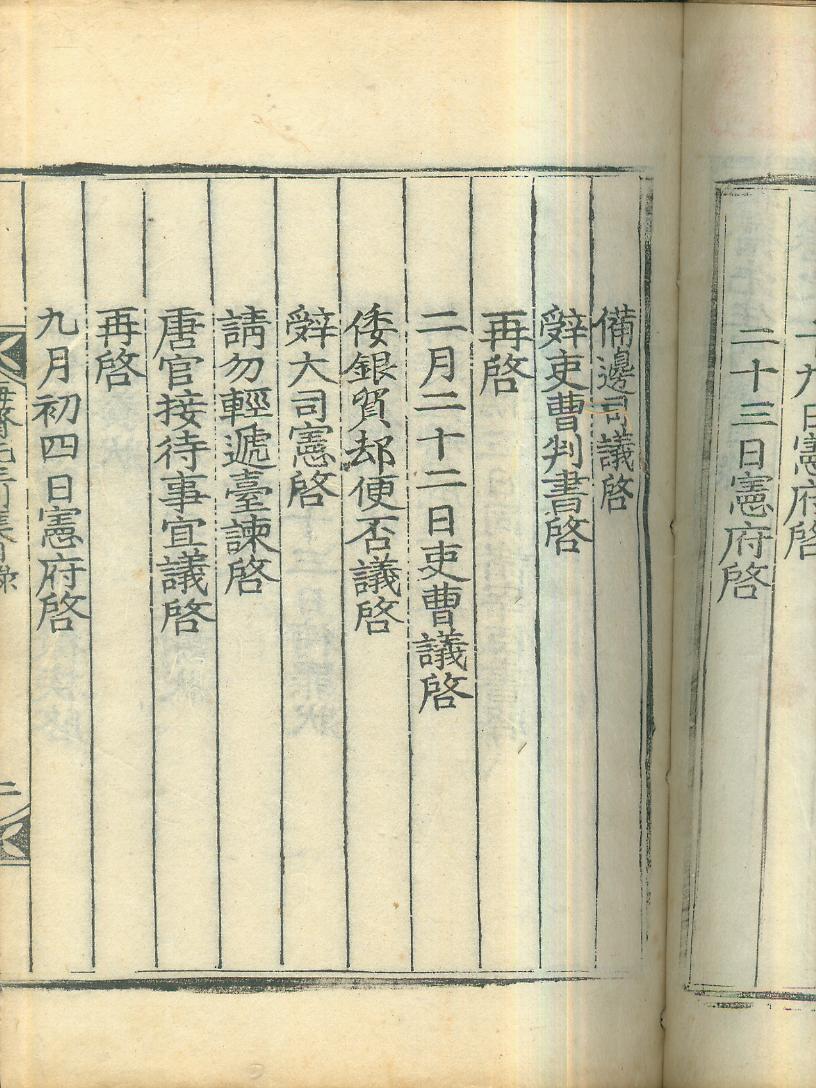 十九日憲府啓
二十三日憲府啓
備邊司議啓
辭吏曹判書啓
再啓
二月二十二日吏曹議啓
倭銀貿却便否議啓
辭大司憲啓
請勿輕遞臺諫啓
唐官接待事宜議啓
再啓
九月初四日憲府啓
二